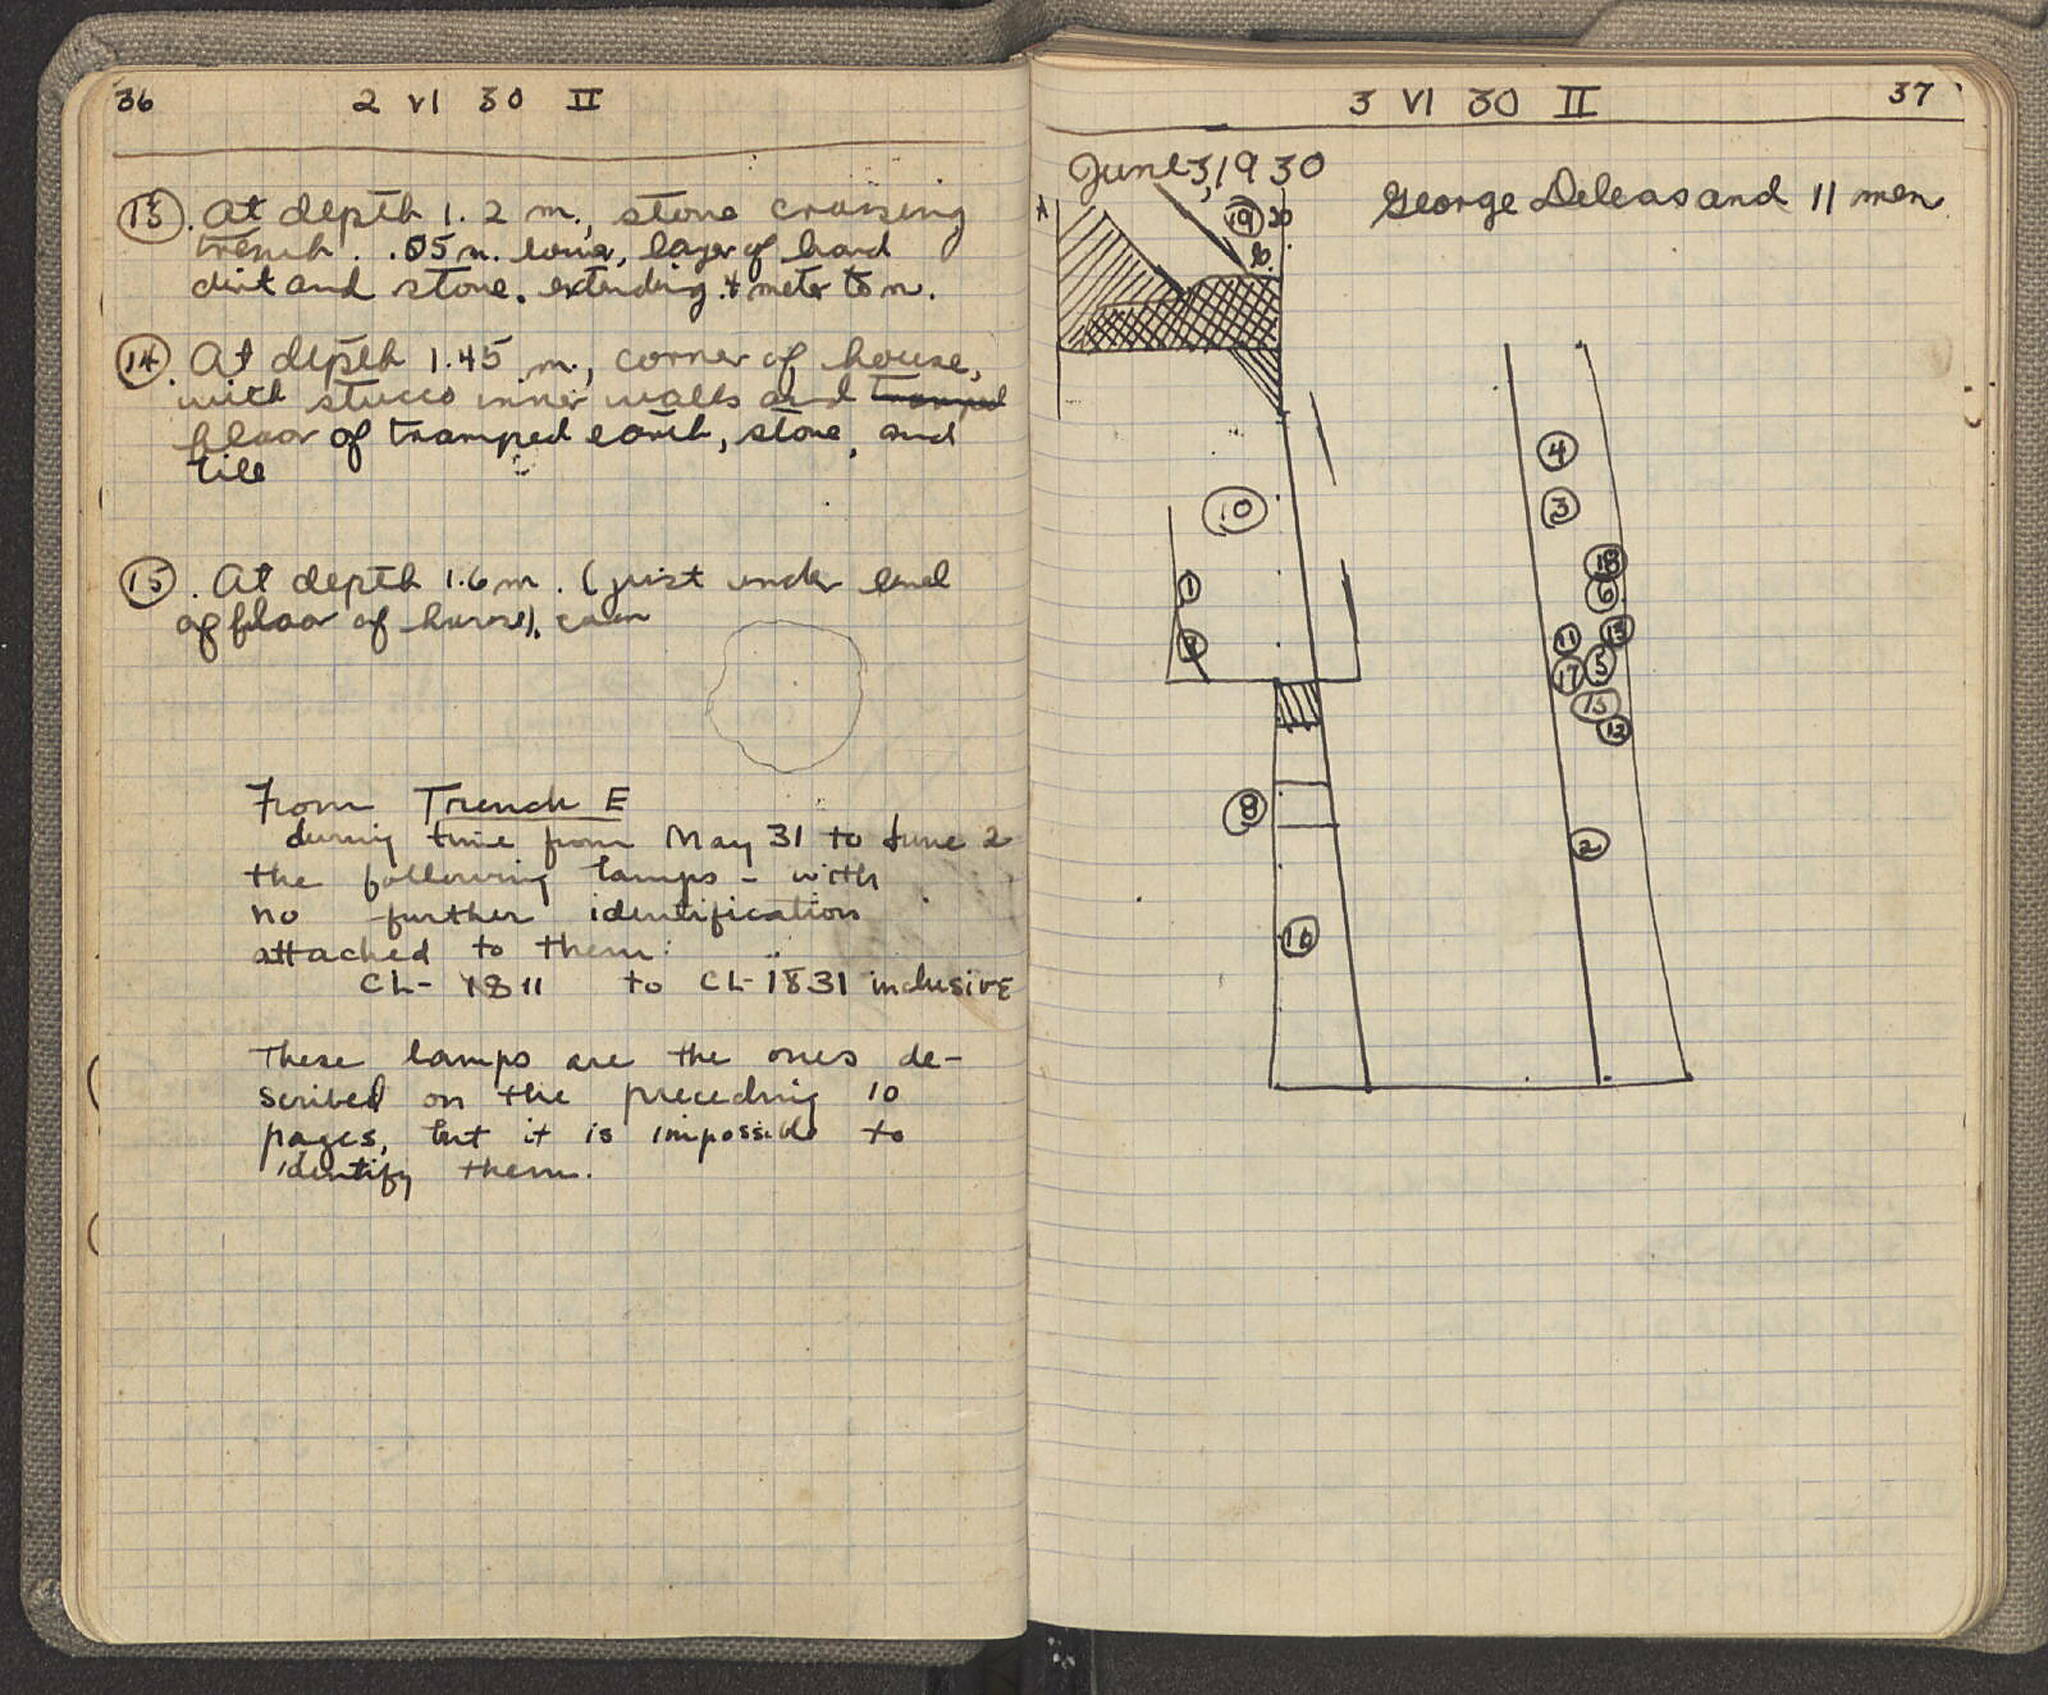 36
2 VI 30 II
(13). At depth 1.2 m., stone crossing
trench. .05 m. lower, layer of hard
dirt and stone. extending .4 meter to n.
(14). At depth 1.45 m., corner of house,
with stucco inner walls and tramped
floor of tramped earth, stone, and
tile
(15). At depth 1.6 m. (just under level
of floor of house), coin
From Trench E
during time from May 31 to June 2
the following lamps - with
no further identification
attached to them:
CL- 1811 to CL-1831 inclusive
These lamps are the ones de-
scribed on the preceding 10
pages, but it is impossible to
identify them.
3 VI 30 II
37
June 3, 1930
George Deleas and 11 men
A
19
20
10
1
8
16
4
3
18
6
11
13
17
5
15
12
2